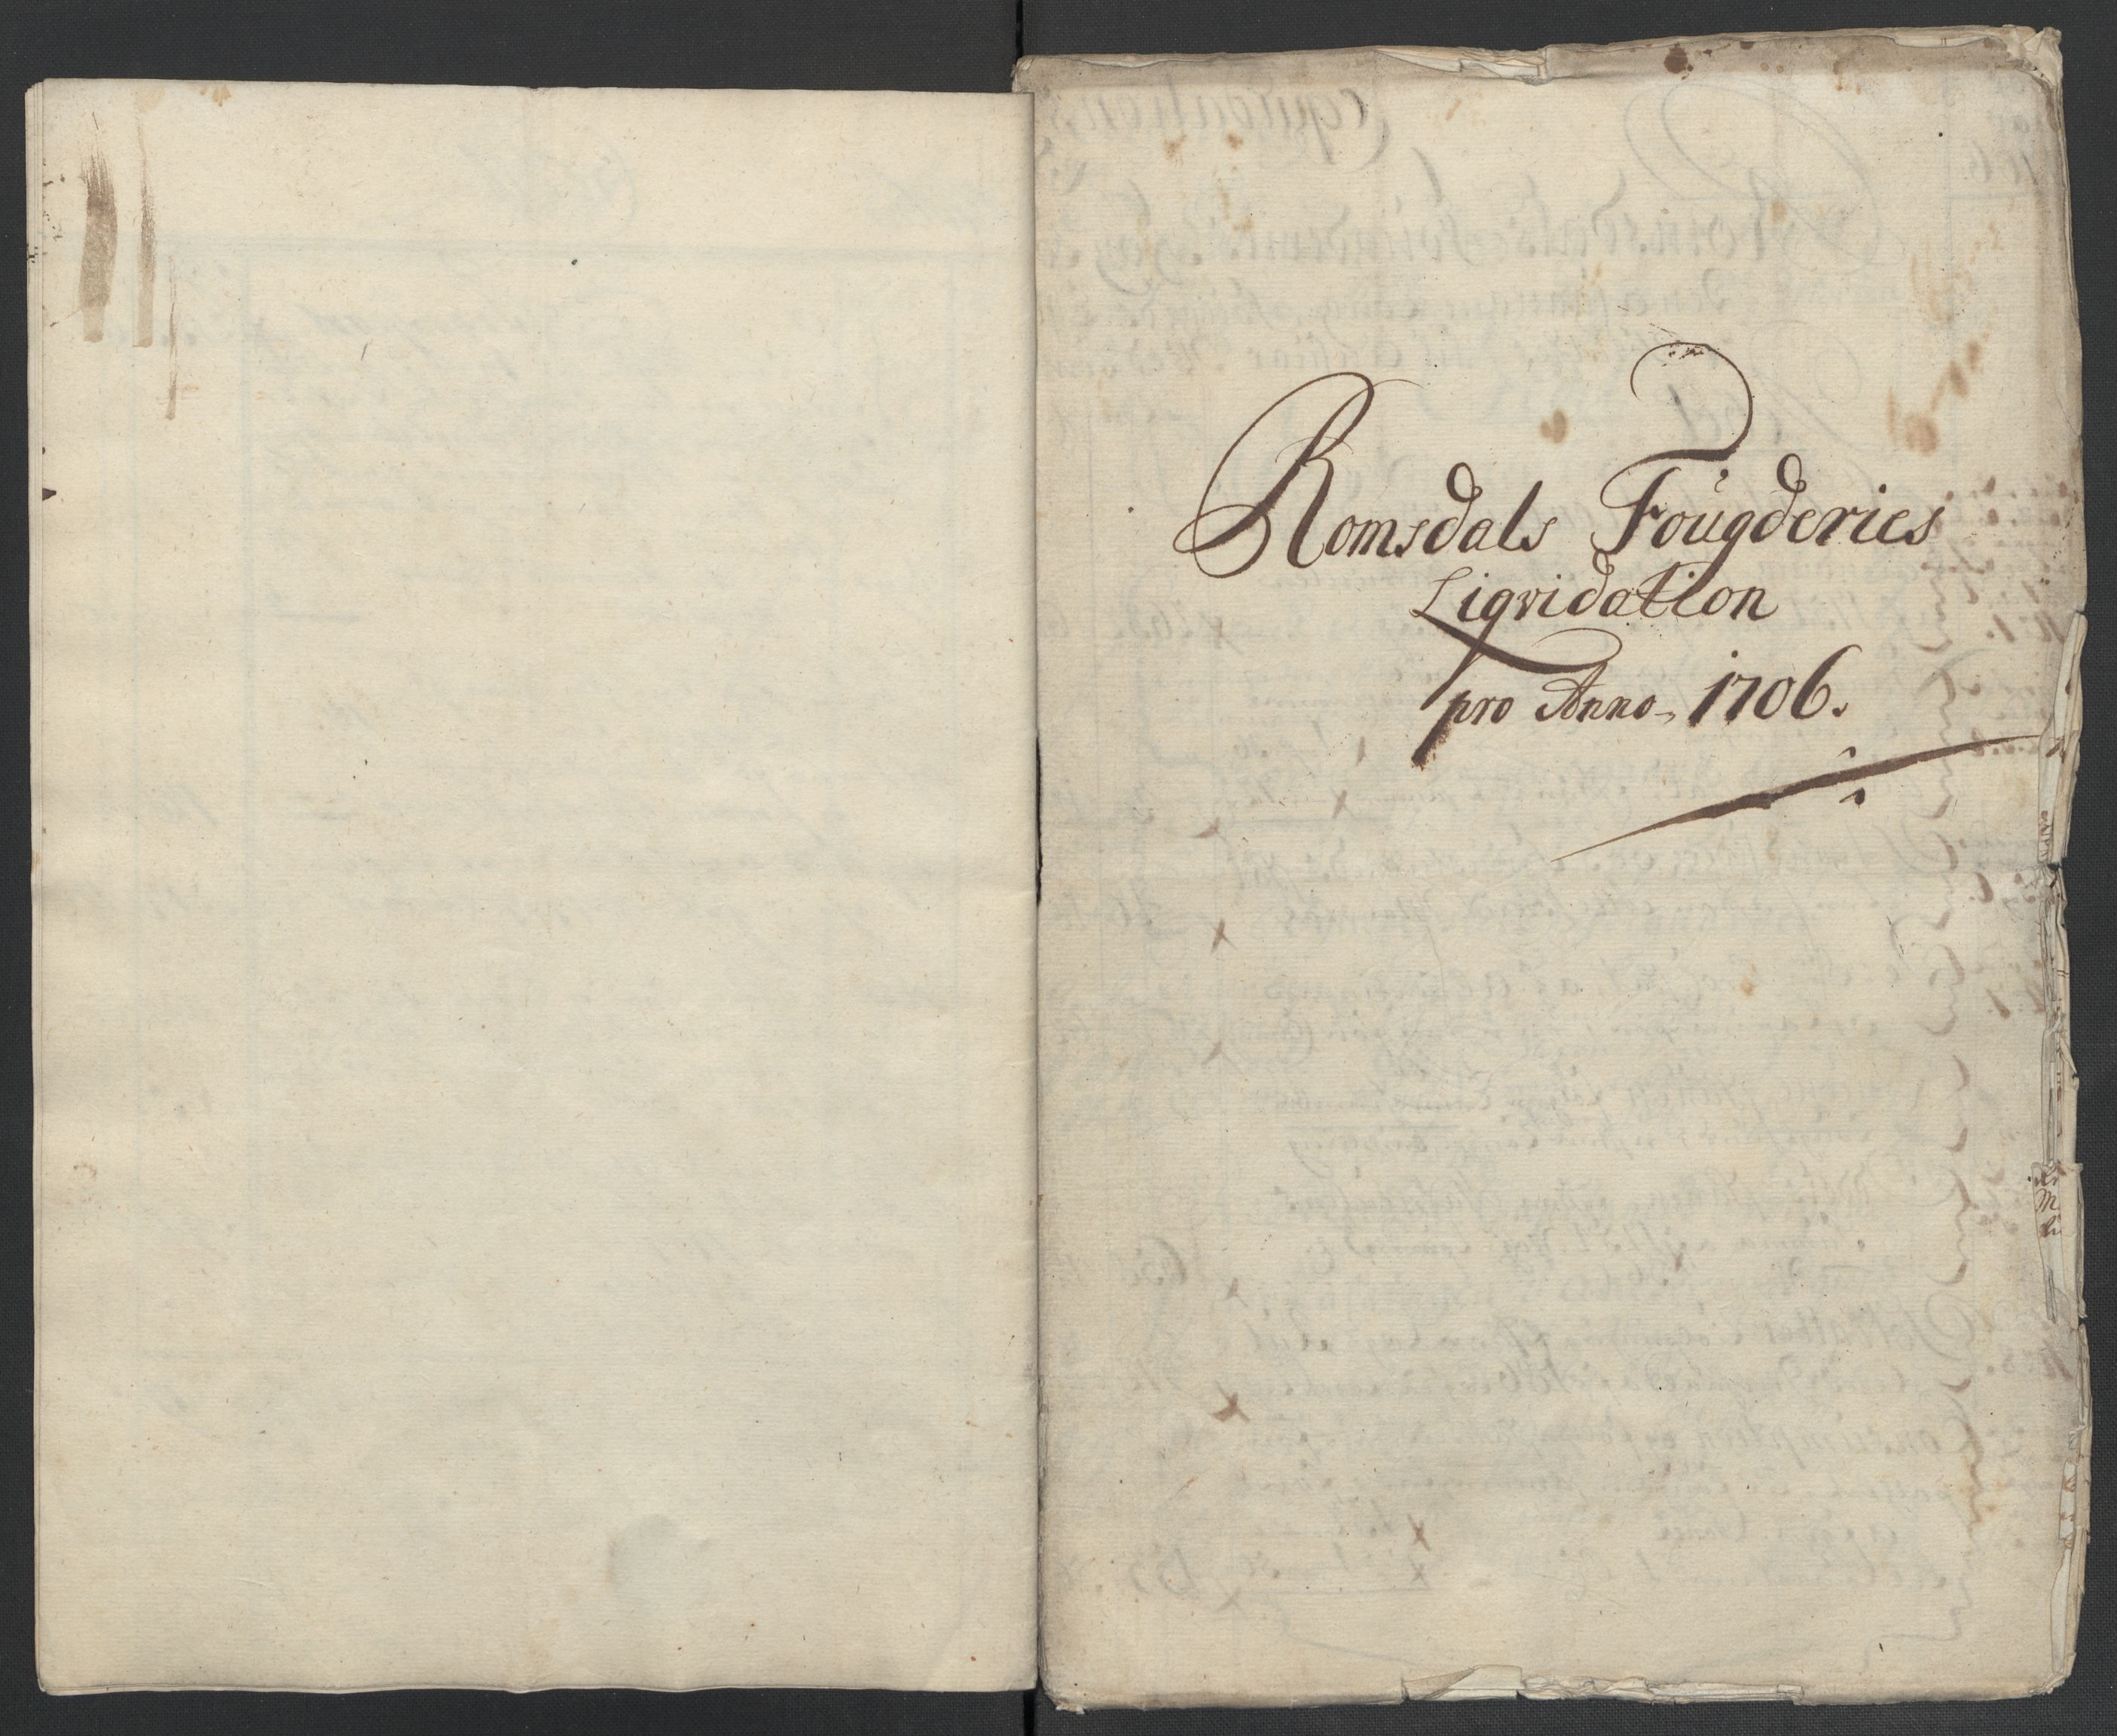 Romsdals Fougderies
Liqvidation
pro Anno 1706.